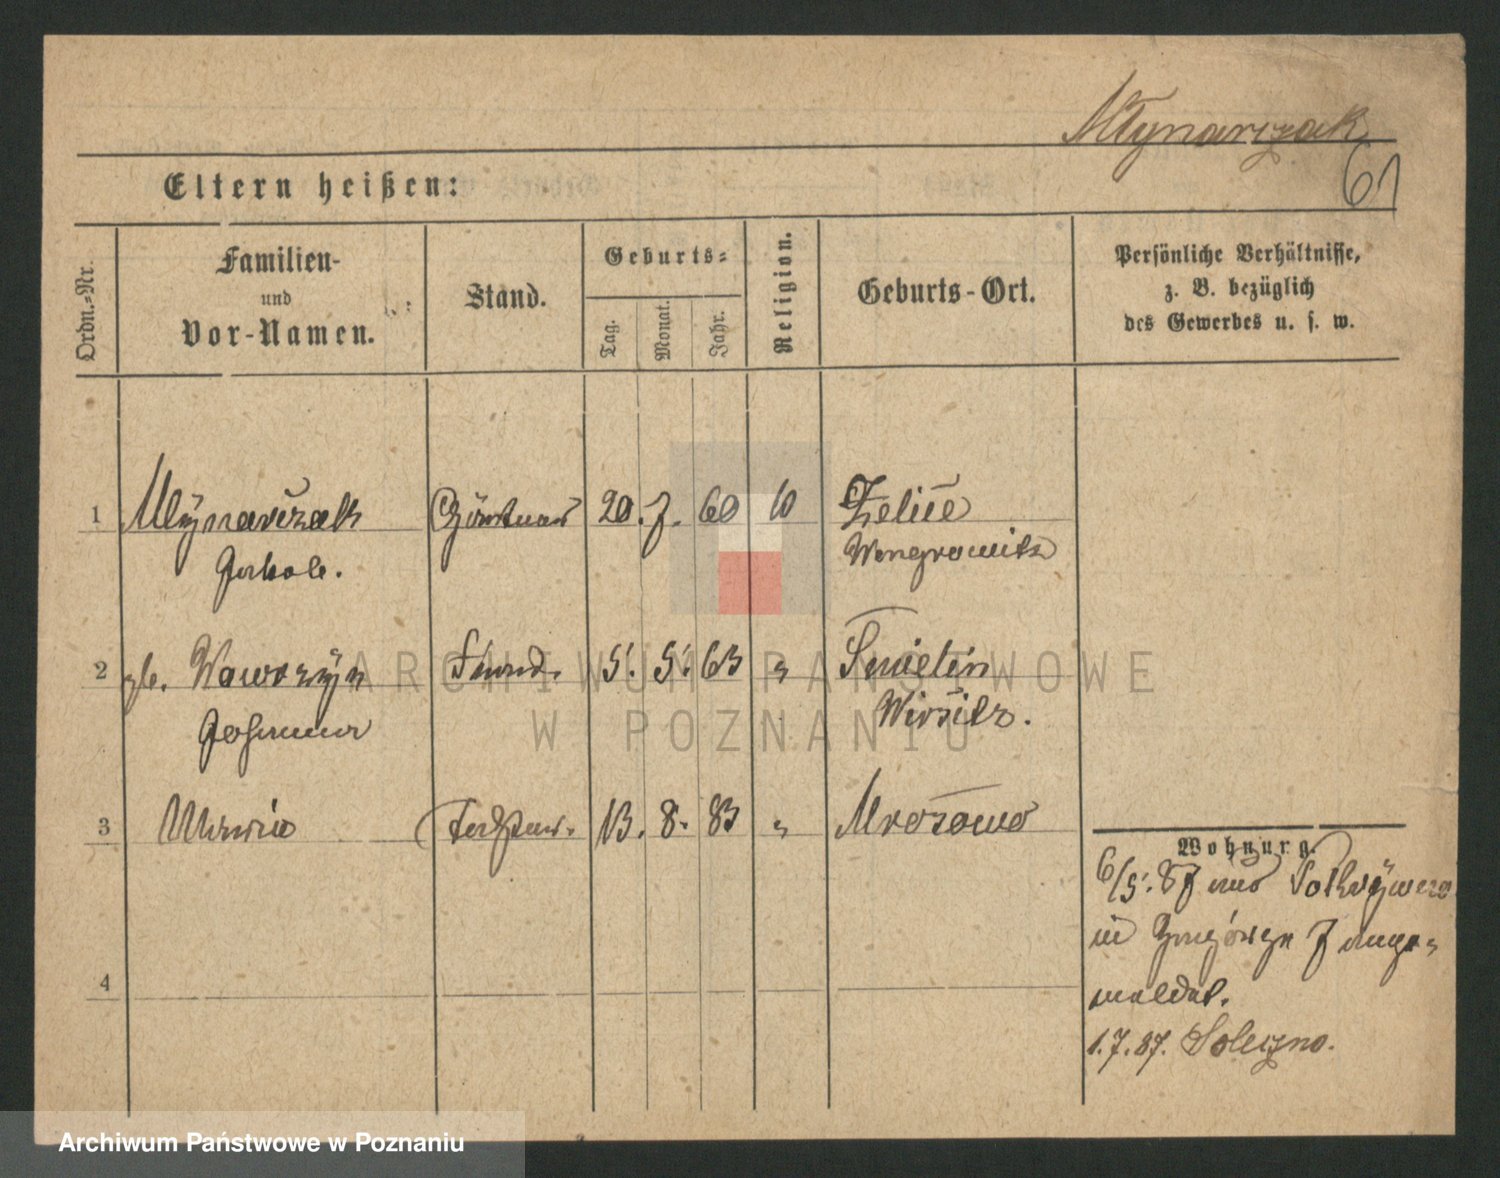 Młynarczak
61
Eltern heißen:
Ordn.-Nr.
Familien-
und
Vor-Namen.
Stand.
Geburts-
Tag.
Monat.
Jahr.
Religion.
Geburts-Ort.
Persönliche Verhältnisse,
z. B. bezüglich
des Gewerbes u. s. w.
1 Mlynarczak Gärtner 20. 7. 60 Zelice
Jakob. Wongrowitz
2 gb. Wawrzyn Frau. 5. 5. 63 " Smielin
Johanna Wirsitz.
3 Maria Tochter. 13. 8. 83 " Mrozowo
Wohnung.
6/5. 87 aus
in Zagórze 7 ange-
meldet.
4
1.7.87. Soleczno.
ARCHIWUM PAŃSTWOWE
W POZNANIU
Archiwum Państwowe w Poznaniu